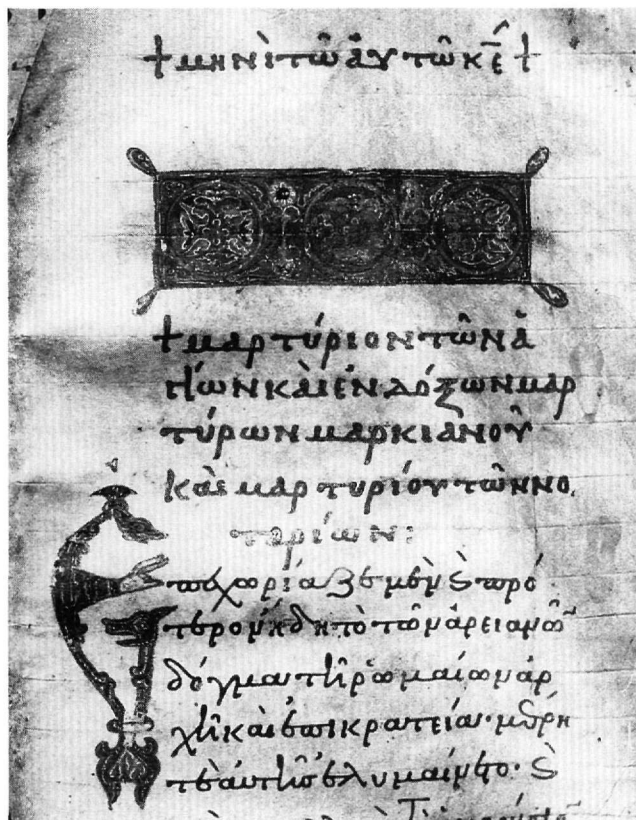 + μηνὶ τῶ ἀυτῶ κε +
+ μαρτύριον τῶν ἁ
γίων καὶ ἐνδόξων μαρ
τύρων μαρκιανοῦ
καὶ μαρτυρίου τῶν νο
ταρίων:
Ἐπεχωρίαζε μὲν ϗ πρό
τερον ἤδη τὸ τῶν ἀρειανῶν
δόγμα τῆ ῥωμαίων ἀρ
χῆ καὶ ἐπικρατεία· μέρη
τε αὐτῆς ἐλυμαίνετο· ϗ